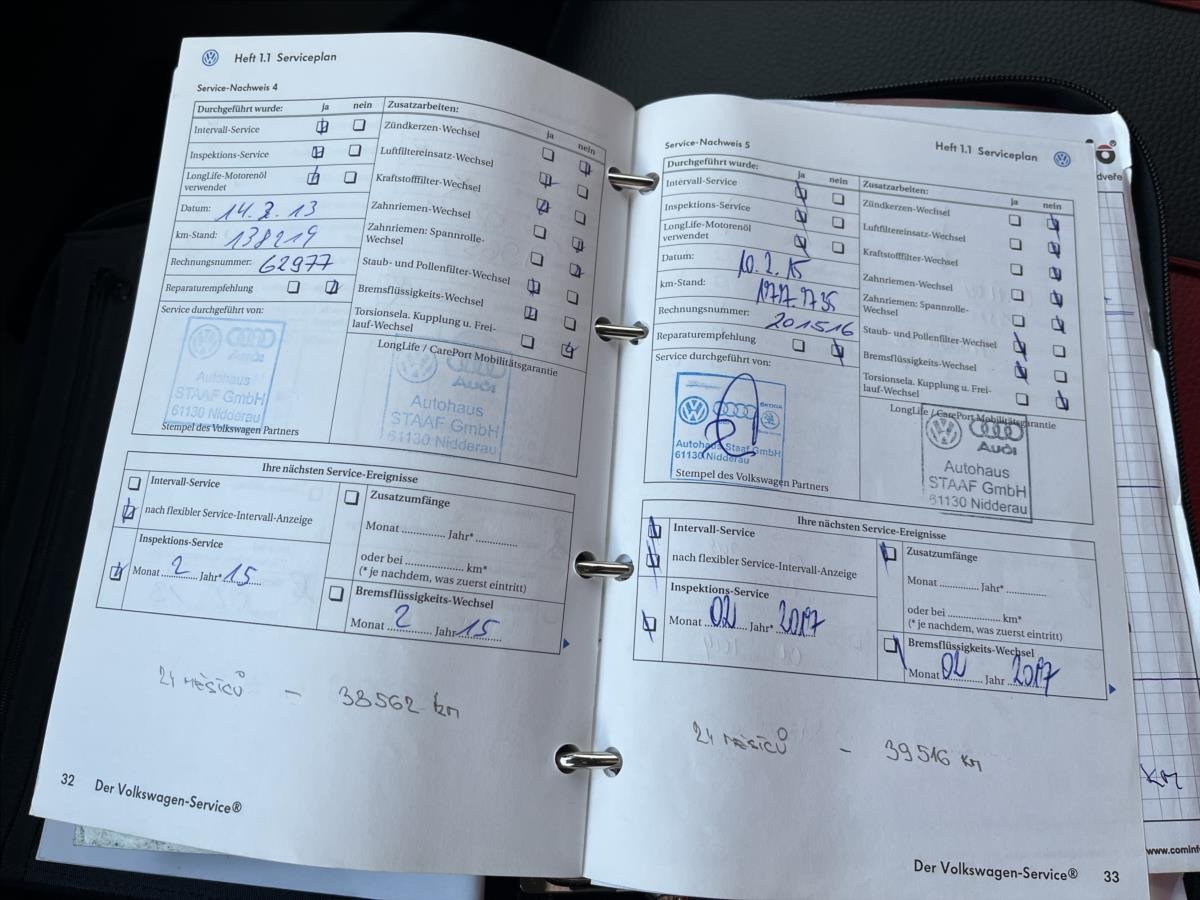 Heft 1.1 Serviceplan
Service-Nachweis 4
Durchgeführt wurde: ja nein
Intervall-Service
Inspektions-Service
LongLife-Motorenöl
verwendet
Datum: 14.2.13
km-Stand: 138219
Rechnungsnummer: 62977
Reparaturempfehlung
Service durchgeführt von:
Audi
Autohaus
STAAF GmbH
61130 Nidderau
Stempel des Volkswagen Partners
Zusatzarbeiten: ja nein
Zündkerzen-Wechsel
Luftfiltereinsatz-Wechsel
Kraftstofffilter-Wechsel
Zahnriemen-Wechsel
Zahnriemen: Spannrolle-
Wechsel
Staub- und Pollenfilter-Wechsel
Bremsflüssigkeits-Wechsel
Torsionsela. Kupplung u. Frei-
lauf-Wechsel
LongLife / CarePort Mobilitätsgarantie
Audi
Autohaus
STAAF GmbH
61130 Nidderau
Ihre nächsten Service-Ereignisse
Intervall-Service
nach flexibler Service-Intervall-Anzeige
Inspektions-Service
Monat 2 Jahr* 15
Zusatzumfänge
Monat Jahr*
oder bei km*
(* je nachdem, was zuerst eintritt)
Bremsflüssigkeits-Wechsel
Monat 2 Jahr 15
24 MĚSÍCŮ - 38562 km
32 Der Volkswagen-Service®
Service-Nachweis 5
Heft 1.1 Serviceplan
Durchgeführt wurde: ja nein
Intervall-Service
Inspektions-Service
LongLife-Motorenöl
verwendet
Datum: 10.2.15
km-Stand:
Rechnungsnummer: 201516
Reparaturempfehlung
Service durchgeführt von:
SKODA
Autohaus Staaf GmbH
61130 Nidderau
Stempel des Volkswagen Partners
Zusatzarbeiten: ja nein
Zündkerzen-Wechsel
Luftfiltereinsatz-Wechsel
Kraftstofffilter-Wechsel
Zahnriemen-Wechsel
Zahnriemen: Spannrolle-
Wechsel
Staub- und Pollenfilter-Wechsel
Bremsflüssigkeits-Wechsel
Torsionsela. Kupplung u. Frei-
lauf-Wechsel
LongLife / CarePort Mobilitätsgarantie
Audi
Autohaus
STAAF GmbH
61130 Nidderau
Ihre nächsten Service-Ereignisse
Intervall-Service
nach flexibler Service-Intervall-Anzeige
Inspektions-Service
Monat 02 Jahr* 2017
Zusatzumfänge
Monat Jahr*
oder bei km*
(* je nachdem, was zuerst eintritt)
Bremsflüssigkeits-Wechsel
Monat 02 Jahr 2017
24 MĚSÍCŮ - 39516 km
Der Volkswagen-Service® 33
km